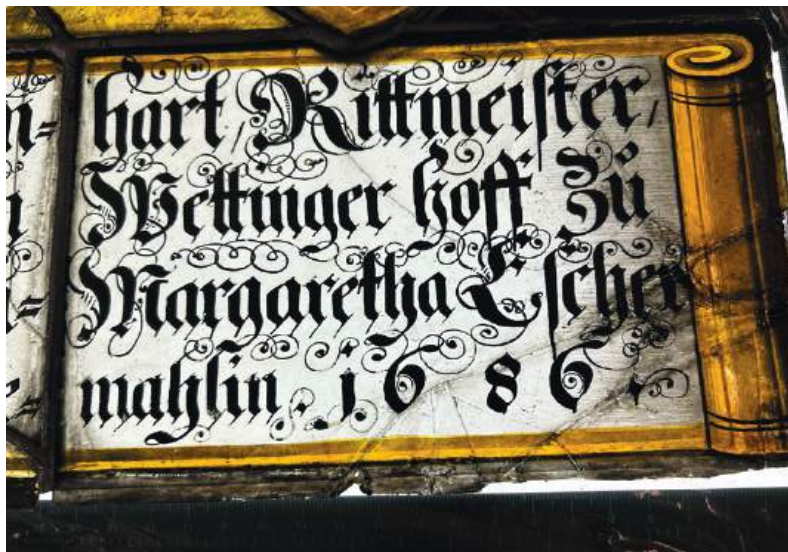 hart, Rittmeister,
Wettinger hoff Zů
Margaretha Escher
mahlin. 1686.